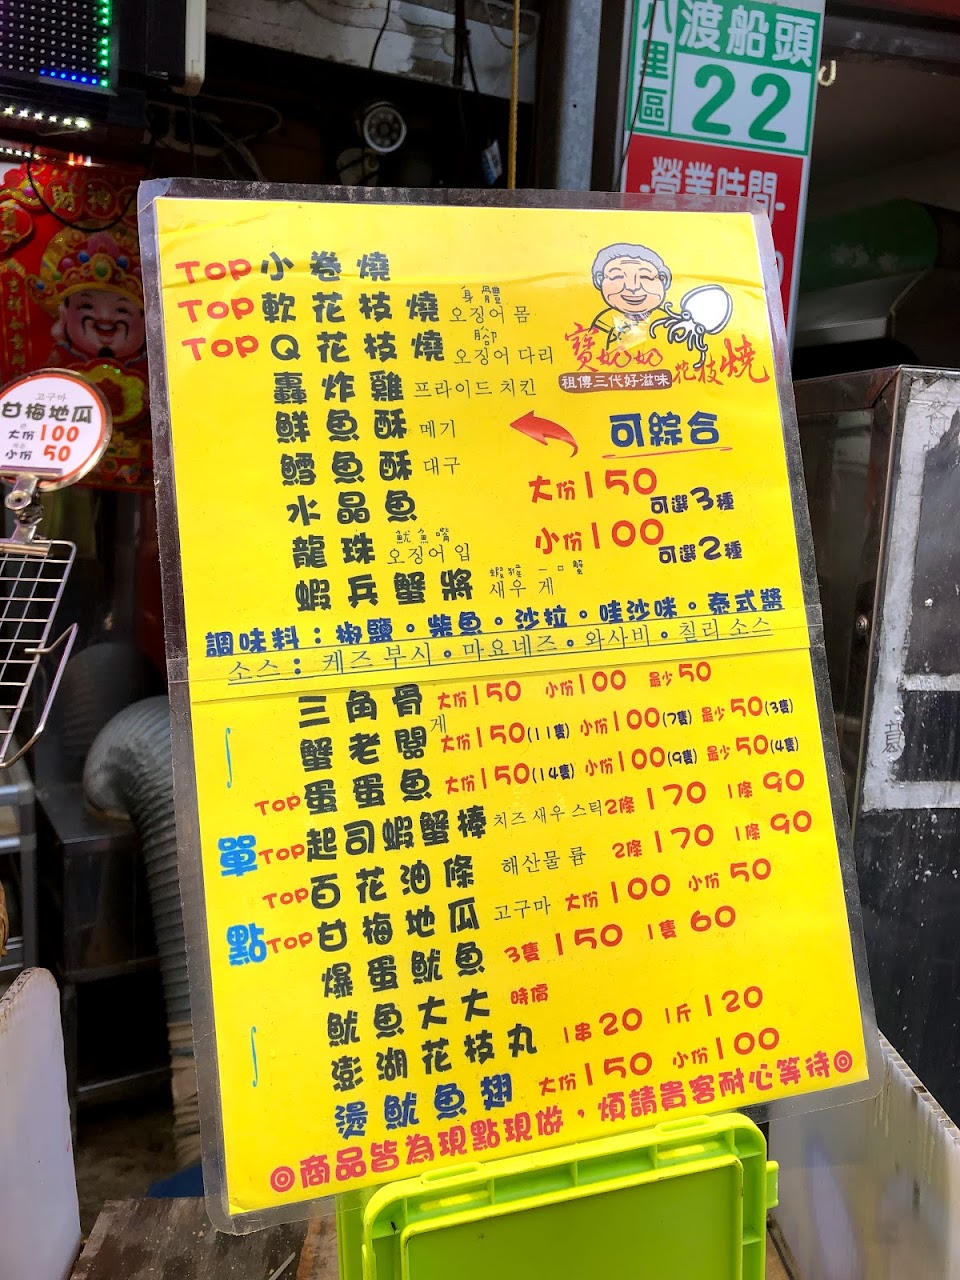 八里區
渡船頭
22
-營業時間-
財神
고구마
甘梅地瓜
大份100
小份 50
TOP 小卷燒
TOP 軟花枝燒 身體 오징어 몸
TOP Q花枝燒 腳 오징어 다리
轟炸雞 프라이드 치킨
鮮魚酥 메기
鱈魚酥 대구
水晶魚
龍珠 魷魚嘴 오징어 입
蝦兵蟹將 새우 게
寶奶奶花枝燒
祖傳三代好滋味
可綜合
大份150 可選3種
小份100 可選2種
調味料：椒鹽。柴魚。沙拉。哇沙咪。泰式醬
소스： 케즈 부시。마요네즈。와사비。칠리 소스
單點
三角骨 大份150 小份100 最少 50
蟹老闆 게 大份150(11隻) 小份100(7隻) 最少50(3隻)
TOP蛋蛋魚 大份150(14隻) 小份100(9隻) 最少50(4隻)
TOP起司蝦蟹棒 치즈 새우 스틱 2條 170 1條 90
TOP百花油條 해산물 튭 2條 170 1條 90
TOP甘梅地瓜 고구마 大份 100 小份 50
爆蛋魷魚 3隻 150 1隻 60
魷魚大大 時價
澎湖花枝丸 1串20 1斤 120
燙魷魚翅 大份150 小份100
◎商品皆為現點現做，煩請貴客耐心等待◎